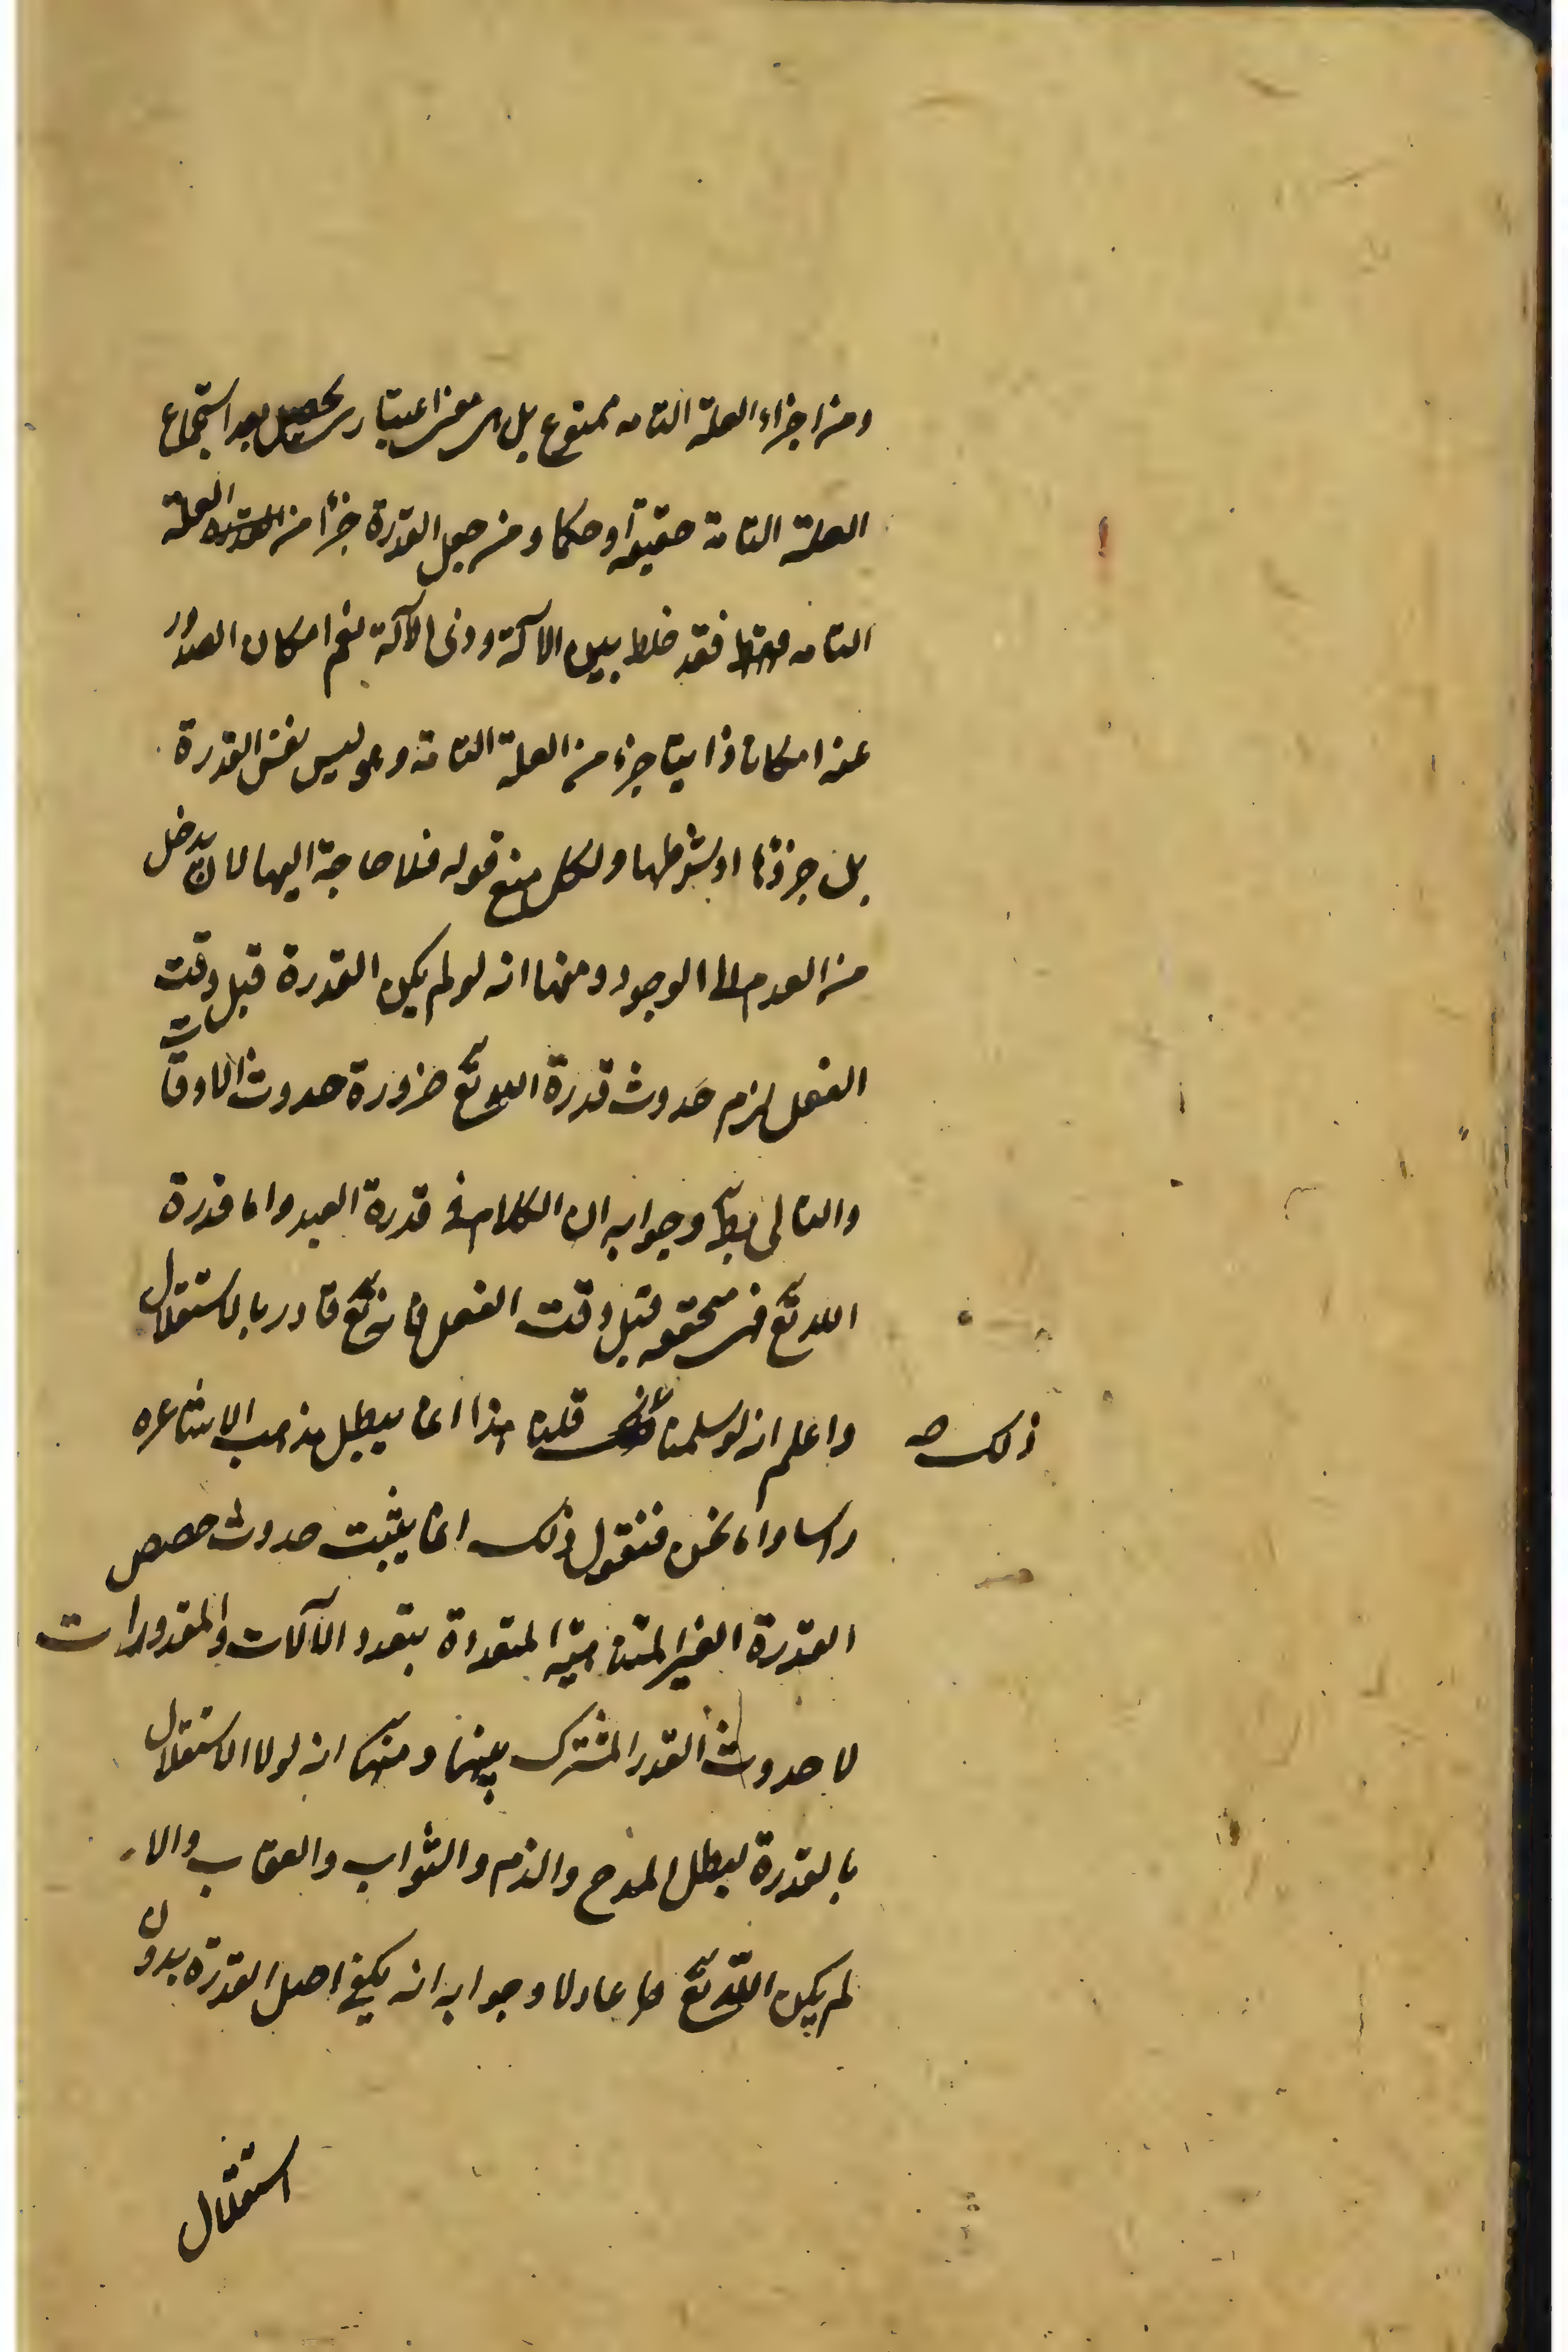 ومن اجزاء العلة التامه ممنوع بل هى معنى اعتبارى يحصل بعد استجماع
العلة التامة حقيقة او حكما ومن جعل القدرة جزأ من العلة
التامه فقد خلط بين الآلة وذى الآلة نعم امكان الصدور
عنه امكانا ذاتيا جزء من العلة التامة وهو ليس نفس القدرة
بل جزؤها او شرطها ولكل منع قوله فلا حاجة اليها لان يدخل
من العدم الى الوجود ومنها انه لو لم يكن القدرة قبل وقت
الفعل لزم حدوث قدرة الله تع ضرورة حدوث الاوقات
والتالى بط وجوابه ان الكلام فى قدرة العبد واما قدرة
الله تع فهى متحققه قبل وقت الفعل فانه تع قادر بالاستقلال
واعلم انه لو سلمنا ذلك صح قلنا هذا انما يبطل مذهب الاشاعره
راسا واما نحن فنقول ذلك انما يثبت حدوث حصص
القدرة الغير المتناهية المتعددة بتعدد الآلات والمقدورات
لا حدوث القدر المشترك بينها ومنها انه لولا الاستقلال
بالقدرة لبطل المدح والذم والثواب والعقاب والا
لم يكن الله تع عادلا وجوابه انه يكفى اصل القدرة بدون
استقلال